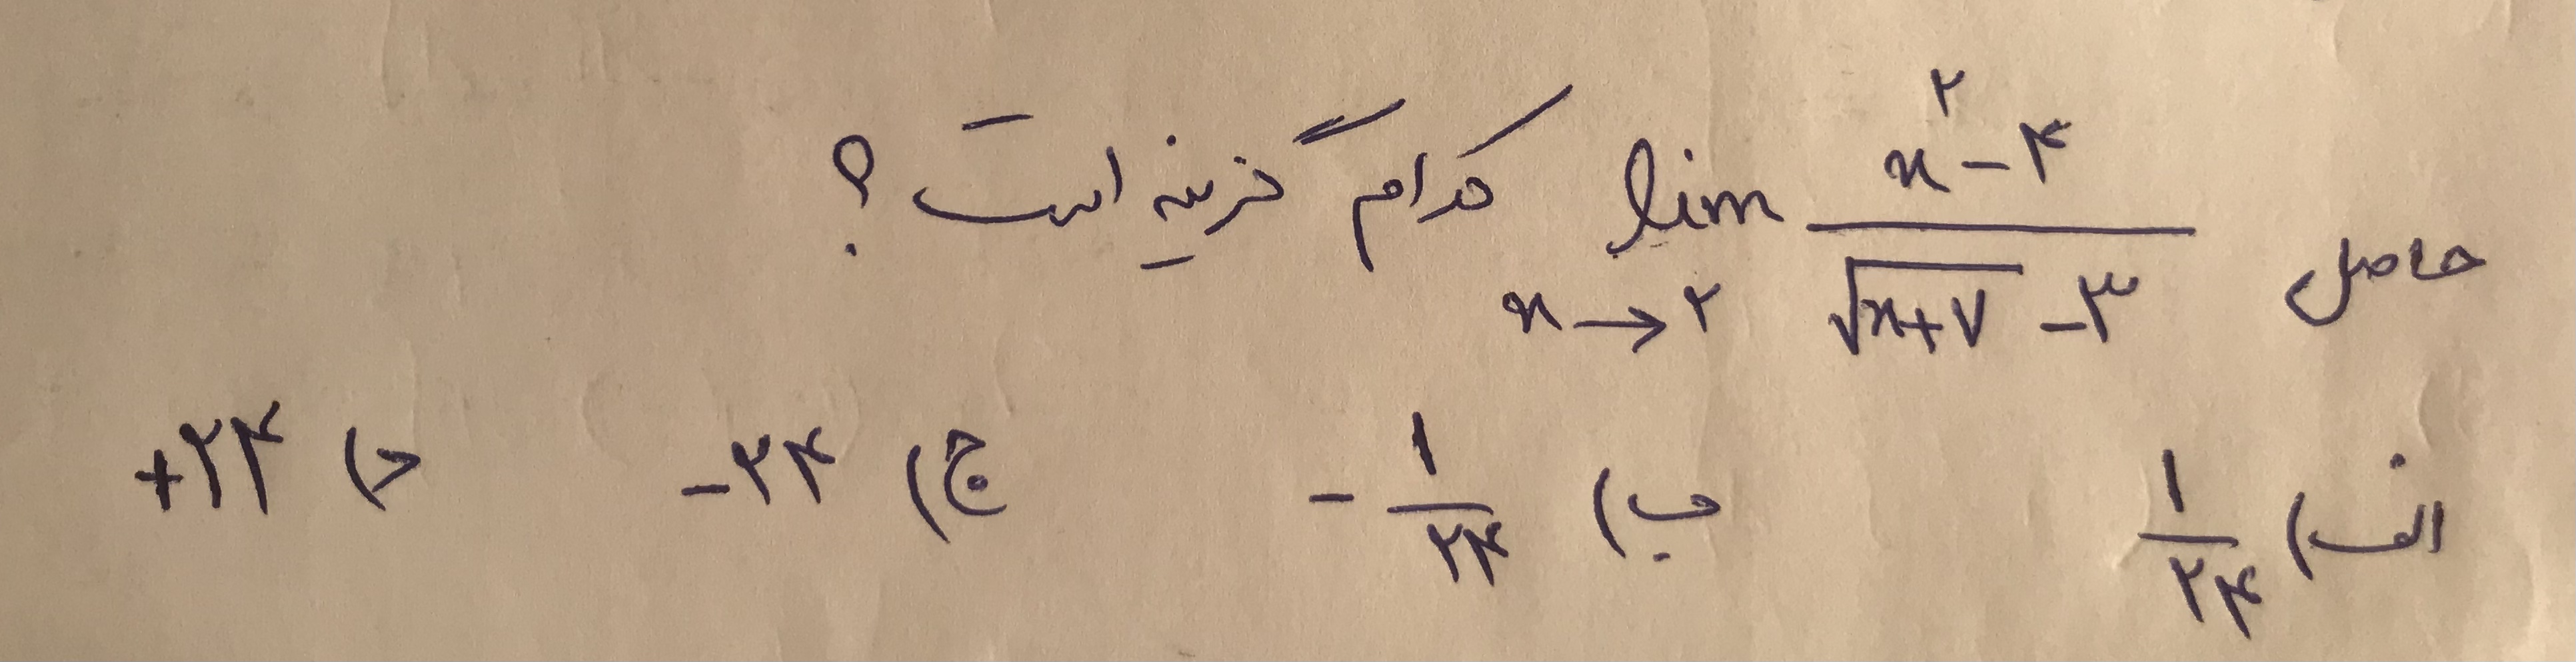 حاصل lim x→۲ (x^۲ - ۴)/(√(x+۷) - ۳) کدام گزینه است؟
الف) ۱/۲۴ ب) -۱/۲۴ ج) -۲۴ د) +۲۴